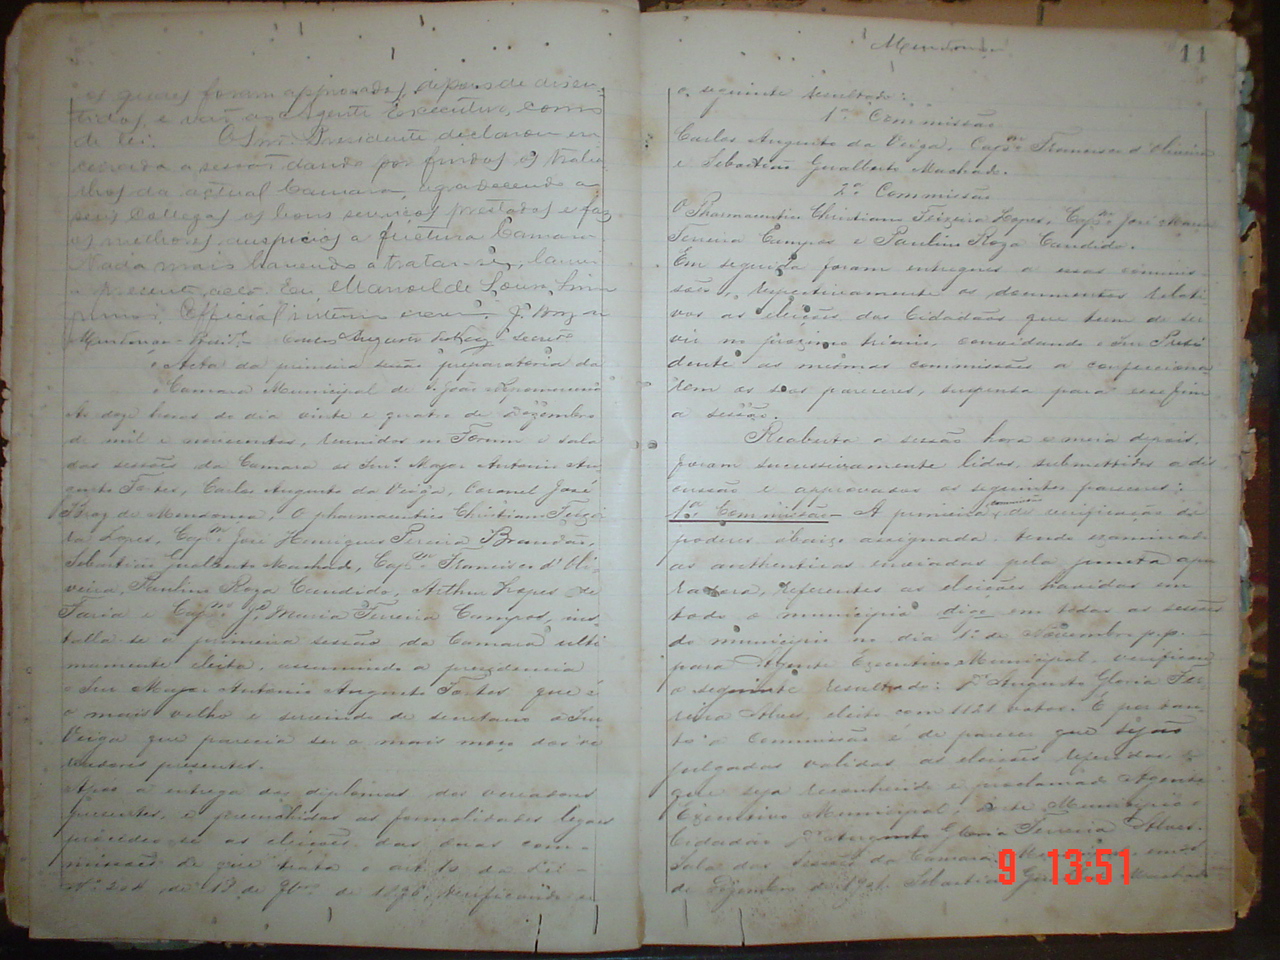 os quaes foram approvados depois de discu-
tidos, e vão ao Agente Executivo, como
de lei. O Snr. Presidente declarou en
cerrada a sessão dando por findos os traba
lhos da actual Camara, agradecendo a
seus Collegas os bons serviços prestados e faz
os melhores auspicios a futura Camara.
Nada mais havendo a tratar-se, lavrei
a presente acta. Eu Manoel de Souza
Official interino escrevi. J. Braz de
Mendonça - Presid.
Acta da primeira sessão preparatoria da
Camara Municipal de S. João Nepomuceno
As doze horas do dia vinte e quatro de Dezembro
de mil e novecentos, reunidos no Forum e sala
das sessões da Camara os Snrs. Major Antonio Au
gusto Fortes, Carlos Augusto da Veiga, Coronel José
Braz de Mendonça, O pharmaceutico Christiano Teixei
ra Lopes, Capm. José Henriques Pereira Brandão,
Sebastião Gualberto Machado, Capm. Francisco d'Oli-
veira, Paulino Roza Candido, Arthur Lopes de
Faria e Capm. J. Maria Ferreira Campos, ins
talla-se a primeira sessão da Camara ulti
mamente eleita, assumindo a presidencia
o Snr. Major Antonio Augusto Fortes que é
o mais velho e servindo de secretario o Snr
Veiga que parecia ser o mais moço dos ve
readores presentes.
Apos a entrega dos diplomas dos vereadores
presentes, e prenchidas as formalidades legaes
procedeu-se as eleições das duas com-
missões de que trata o art. 10 da Lei
Nº 204 de 18 de 7bro. de 1896, verificando-se
Mendonça
11
o seguinte resultado:
1ª Commissão
Carlos Augusto da Veiga, Capm. Francisco d'Oliveira
e Sebastião Gualberto Machado.
2ª Commissão
O Pharmaceutico Christiano Teixeira Lopes, Capm. José Maria
Ferreira Campos e Paulino Roza Candido.
Em seguida foram entregues a essas commis-
sões, respectivamente os documentos relati
vos as eleições dos Cidadãos que tem de ser
vir no proximo trienio, convidando o Snr Presi
dente as mesmas commissões a confecciona
rem os seus pareceres, suspensa para esse fim
a sessão.
Reaberta a sessão hora e meia depois,
foram successivamente lidos, submettidos a dis
cussão e approvados os seguintes pareceres:
1ª Commissão - A primeira commissão de verificação de
poderes abaixo assignada, tendo examinado
as authenticas enviadas pela junta apu
radora, referentes as eleições havidas em
todo o municipio digo em todas as sessões
do municipio no dia 1º de Novembro p.p. -
para Agente Executivo Municipal, verificou
o seguinte resultado: Dr. Augusto Gloria Fer-
reira Alves, eleito com votos. E por tan-
to a Commissão é de parecer que sejão
julgadas validas as eleições referidas, e
que seja reconhecido e proclamado Agente
Executivo Municipal deste Municipio o
Cidadão Dr. Augusto Gloria Ferreira Alves.
Sala das Sessões da Camara em
de Dezembro de Sebastião Machado
9 13:51